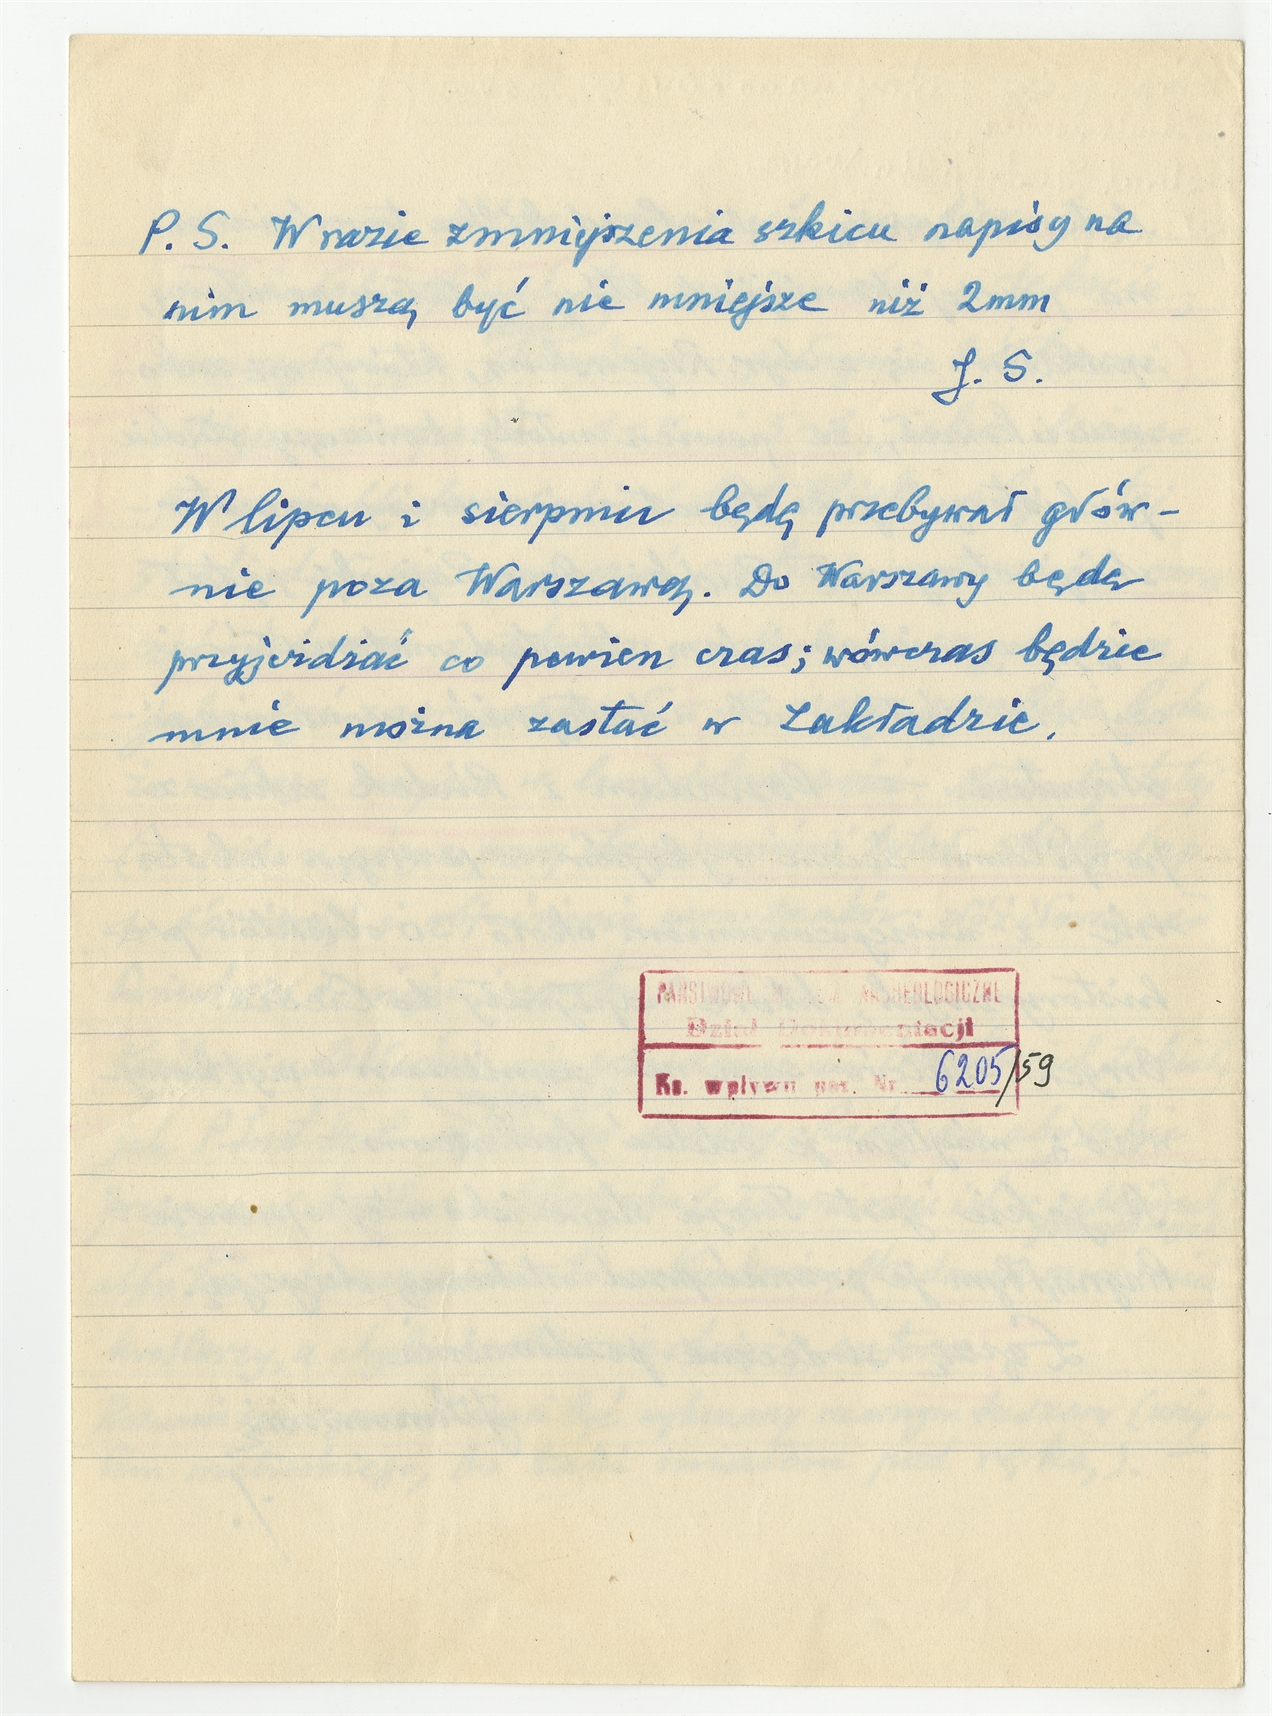 P. S. W razie zmniejszenia szkicu napisy na
nim muszą być nie mniejsze niż 2mm
J. S.
W lipcu i sierpniu będę przebywał głów-
nie poza Warszawą. Do Warszawy będę
przyjeżdżać co pewien czas; wówczas będzie
mnie można zastać w Zakładzie.
PAŃSTWOWE MUZEUM ARCHEOLOGICZNE
Dział Dokumentacji
Ks. wpływu Nr 6205/59